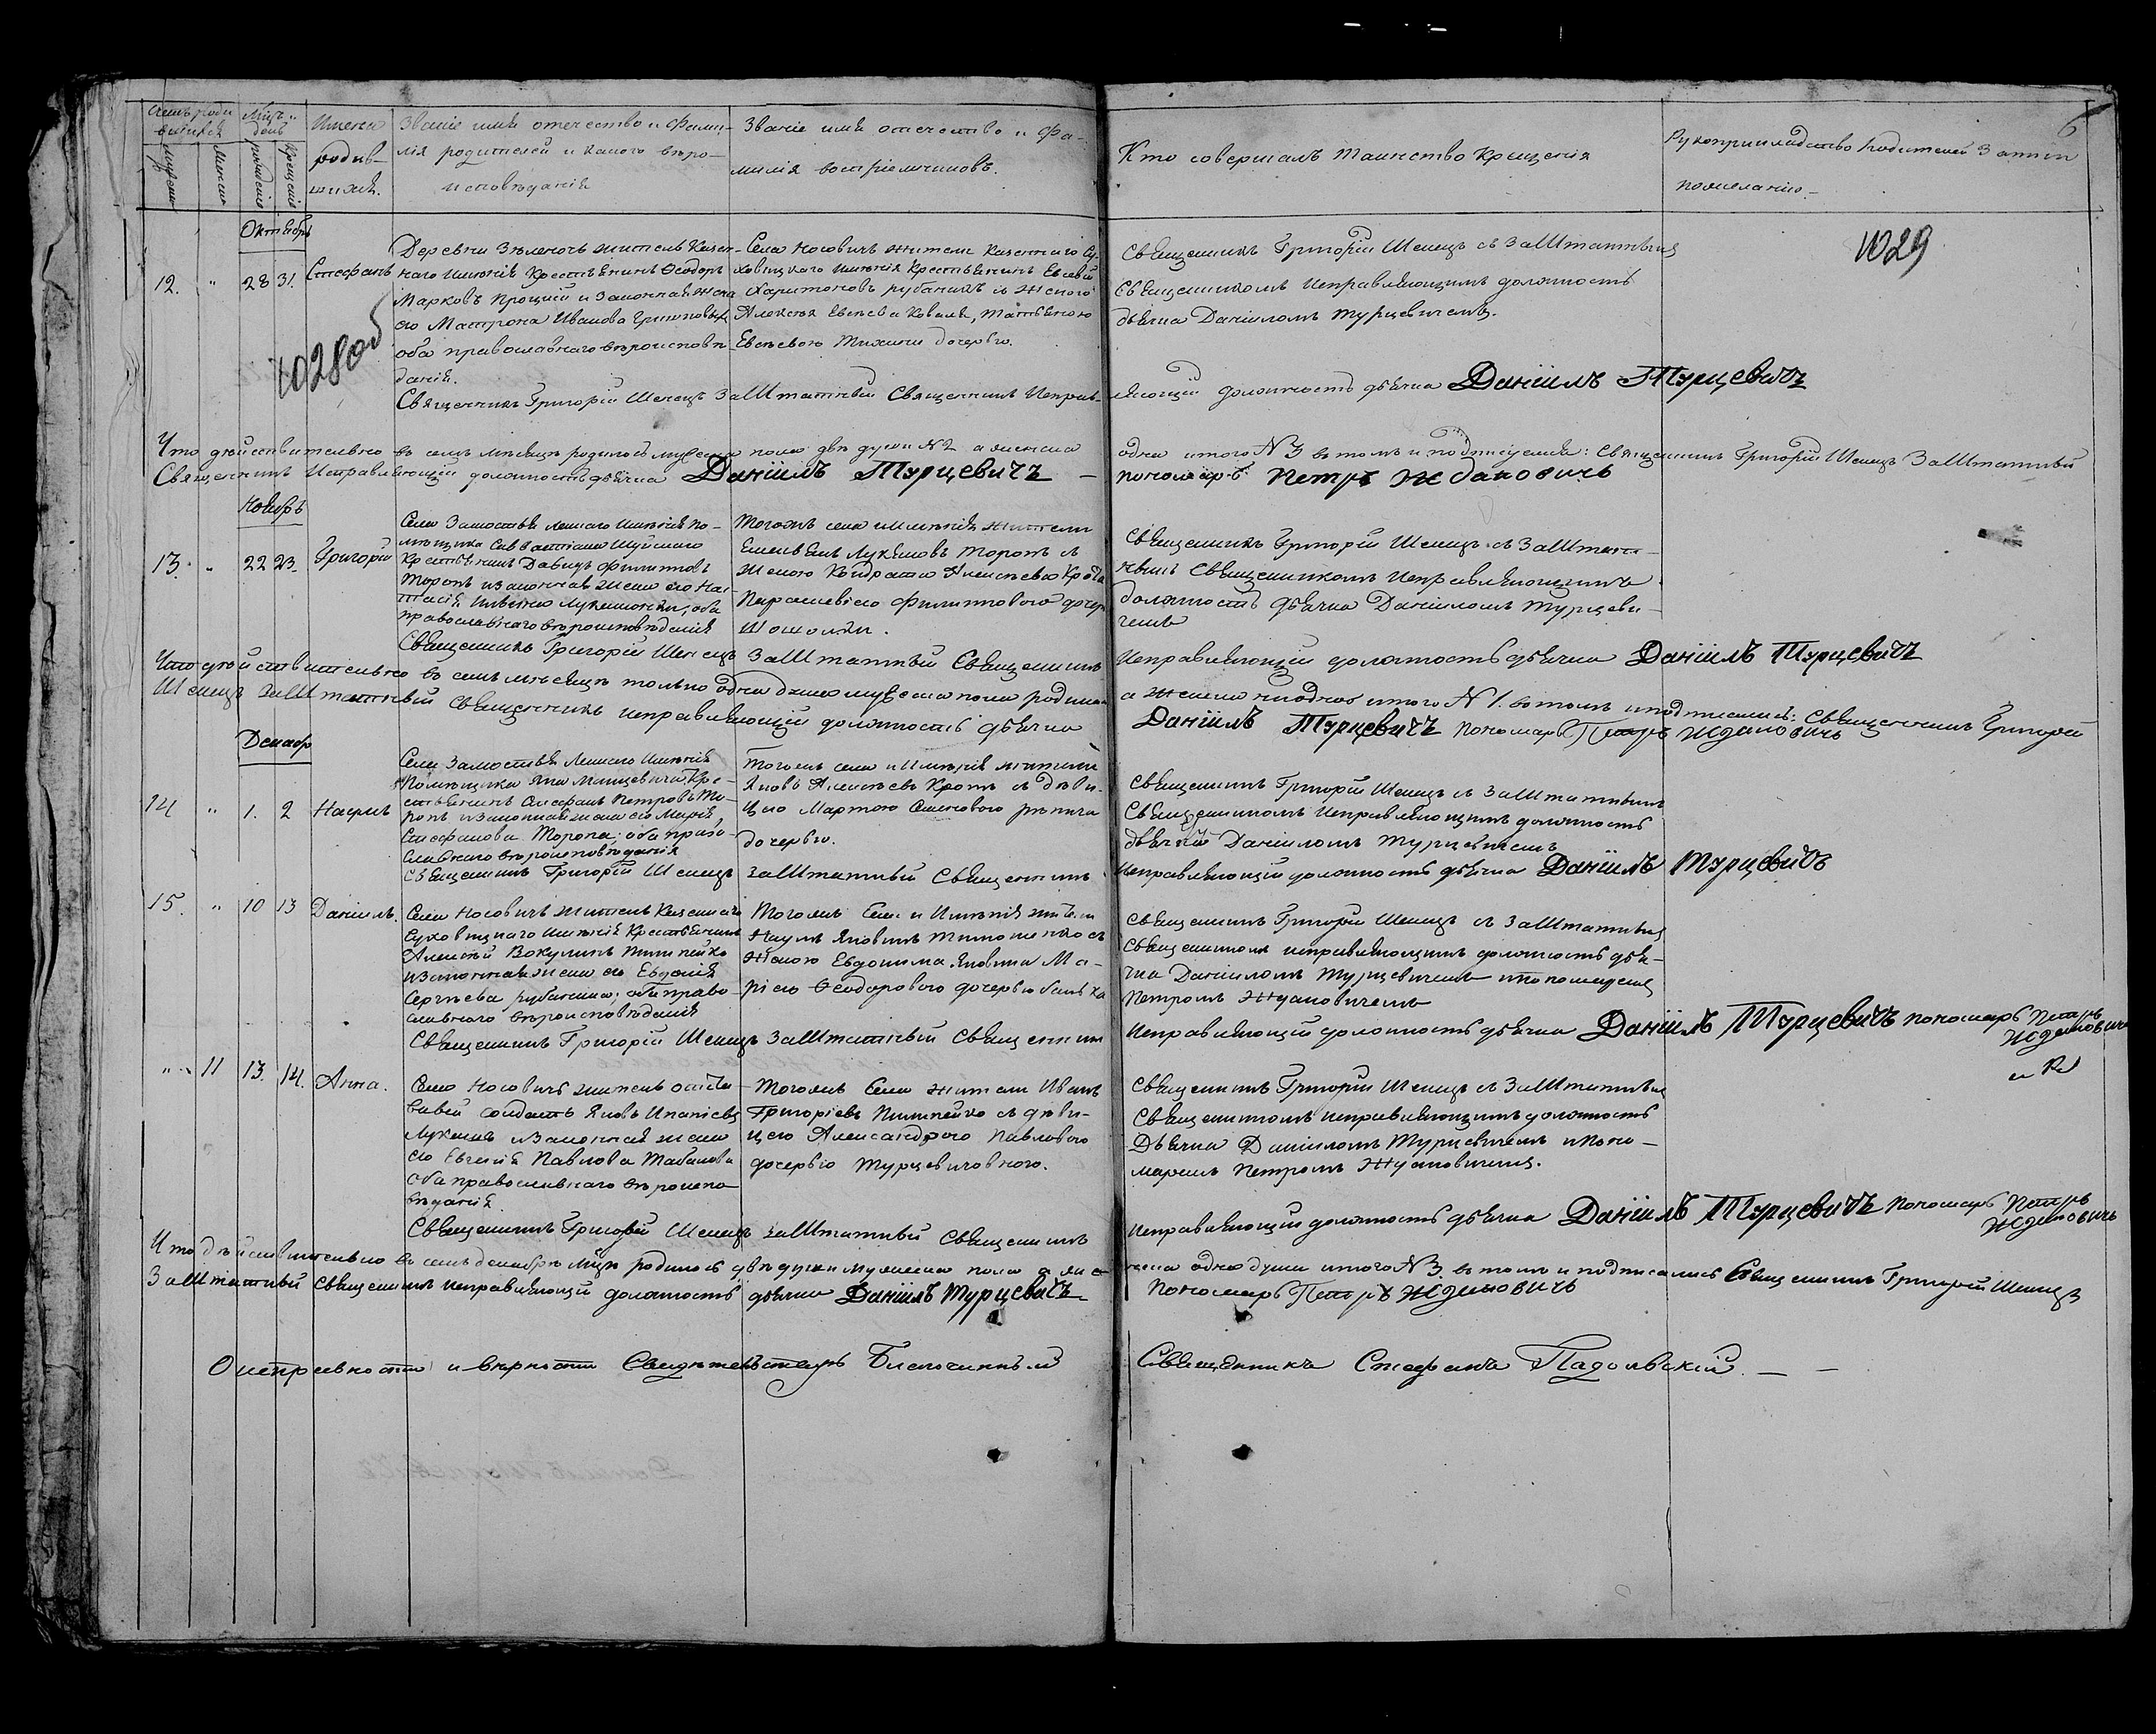 Счетъ роди
вшихся
Мцъ и
день
Имена
родив-
шихся.
Званіе имя отечество и фами-
лія родителей и какого вѣро-
исповѣданія
Званіе имя отечество и фа-
милія воспріемниковъ.
Кто совершалъ таинство крещенія
Рукоприкладство
по желанію
6
мужеска
женска
рожденія
крещенія
Октябрь
12. " 28 31. Стефанъ
Деревни жител Казен-
наго имѣнія Крестьянинъ Ѳеодоръ
Марковъ и законная жена
его Матрона Иванова
оба православнаго вѣроисповѣ
данія.
Села Носовичъ жители Казеннаго Су-
ховицкаго имѣнія Крестьянинъ Евсевій
Харитоновъ рубаникъ съ женою
Алексѣя Евсѣева Коваля, Татьяною
Евсѣевою дочерью.
Священникъ Григорій Шенецъ съ заштатнымъ
священникомъ исправляющимъ должность
дьячка Даніиломъ Турцевичемъ.
1029
1028об
Священникъ Григорій Шенецъ Заштатный Священникъ Исправ-
ляющій должность дьячка Даніилъ Турцевичъ
Что дѣйствительно въ семъ мѣсяцѣ родилось мужеска пола двѣ души №2 а женска
одна итого №3 въ томъ и подписуемся: Священникъ Григорій Шенецъ Заштатный
Священникъ Исправляющій должность дьячка Даніилъ Турцевичъ —
пономарь Петръ Ждановичь
Ноябрь
13. " 22 23. Григорій
Села Замостья имѣнія по-
мѣщика
Крестьянинъ Давидъ Филиповъ
Торопъ и законная жена его Нас-
тасія оба
православнаго вѣроисповѣданія
Тогожъ села и имѣнія жители
Емельянъ Лукьяновъ Торопъ съ
женою Кондрата Алексѣева Крота
Параскевіею Филиповою дочер
Священникъ Григорій Шенецъ съ Заштат-
нымъ Священникомъ Исправляющимъ
должность дьячка Даніиломъ Турцеви-
чемъ
Священникъ Григорій Шенецъ Заштатный Священникъ
Исправляющій должность дьячка Даніилъ Турцевичъ
Что дѣйствительно въ семъ мѣсяцѣ только одна душа мужеска пола родилась
а женска ни одной итого №1. въ томъ и подписались: Священникъ Григорій
Шенецъ Заштатный Священникъ исправляющій должность дьячка
Даніилъ Турцевичъ Пономарь Петръ Ждановичь
Декабр
14 " 1. 2 Наумъ
Села Замостья имѣнія
Помѣщика Яна Кре-
стьянинъ Стефанъ Петровъ То-
ропъ и законная жена его Марія
Стефанова Торопа; оба право-
славнаго вѣроисповѣданія
Тогожъ села и имѣнія жители
Яковъ Алексѣевъ Кротъ съ дѣви-
цею Мартою Семеновою
дочерью.
Священникъ Григорій Шенецъ съ Заштатнымъ
Священникомъ Исправляющимъ должность
дьячка Даніиломъ Турцевичемъ
Священникъ Григорій Шенецъ Заштатный Священникъ
Исправляющій должность дьячка Даніилъ Турцевичъ
15. " 10 13 Даніилъ.
Села Носовичъ житель Казеннаго
Суховицкаго имѣнія Крестьянинъ
Алексѣй Вокулинъ Пилипейко
и законная жена его Евдокія
Сергѣева рубанико; оба право-
славнаго вѣроисповѣданія
Тогожъ Села и Имѣнія жители
Наумъ Яковлевъ Тимошенко съ
женою Евдокима Яковлева Ма-
ріею Ѳеодоровою дочерью
Священникъ Григорій Шенецъ съ Заштатнымъ
священникомъ исправляющимъ должность дья-
чка Даніиломъ Турцевичемъ и пономаремъ
Петромъ Ждановичемъ
Священникъ Григорій Шенецъ Заштатный Священник
Исправляющій должность дьячка Даніилъ Турцевичъ пономарь Петръ
Ждановичь
" " 11 13. 14. Анна.
Села Носовичъ житель отста
вный солдатъ Яковъ Игнатіевъ
Лукьянъ и законная жена
его Евгенія Павлова Табанова
оба православнаго вѣроиспо
вѣданія
Тогожъ Села жители Иванъ
Григоріевъ Пилипейко съ дѣви-
цею Александрою Павловою
дочерью Турцевичовною.
Священникъ Григорій Шенецъ съ Заштатнымъ
Священникомъ исправляющимъ должность
Дьячка Даніиломъ Турцевичемъ и поно-
маремъ Петромъ Ждановичемъ.
Священникъ Григорій Шенецъ заштатный Священникъ
исправляющій должность дьячка Даніилъ Турцевичъ Пономарь Петръ
Ждановичь
Что дѣйствительно въ семъ декабрѣ мцѣ родилось двѣ души мужеска пола а жен
ска одна душа итого №3. въ томъ и подписались Священникъ Григорій Шенецъ
Заштатный Священникъ исправляющій должность дьячка Даніилъ Турцевичъ
Пономарь Петръ Ждановичь
О исправности и вѣрности Свидѣтельствуетъ Благочинный
Священникъ Стефанъ Падольскій. — —